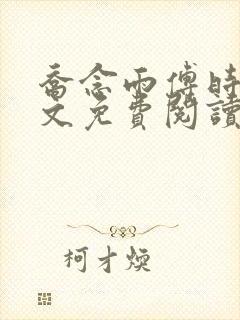 喬念雨傅時
文免費閱讀
柯才煥